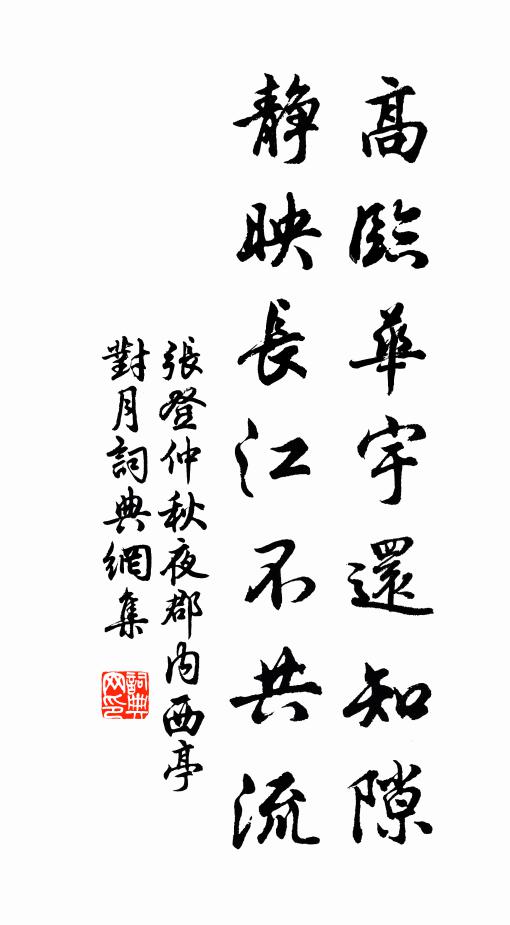 高臨華宇還知隙
靜映長江不共流
張登仲秋夜郡內西亭
對月詞典網集
詞典网印